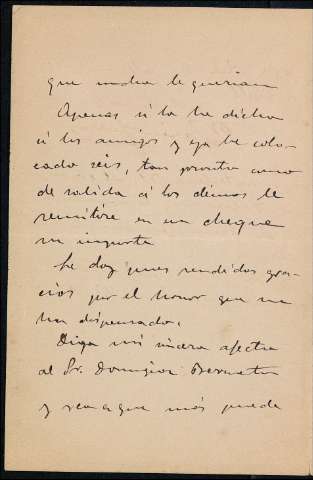 que mucho le querian
Apenas si lo he dicho
á los amigos y ya he colo-
cado seis, tan pronto como
de salida á los démas le
remitiré en un cheque
su importe
Le doy pues rendidas gra-
cias por el honor que me
ha dispensado.
Diga mi sincero afecto
al Sr. Domigion
y vea que más puede